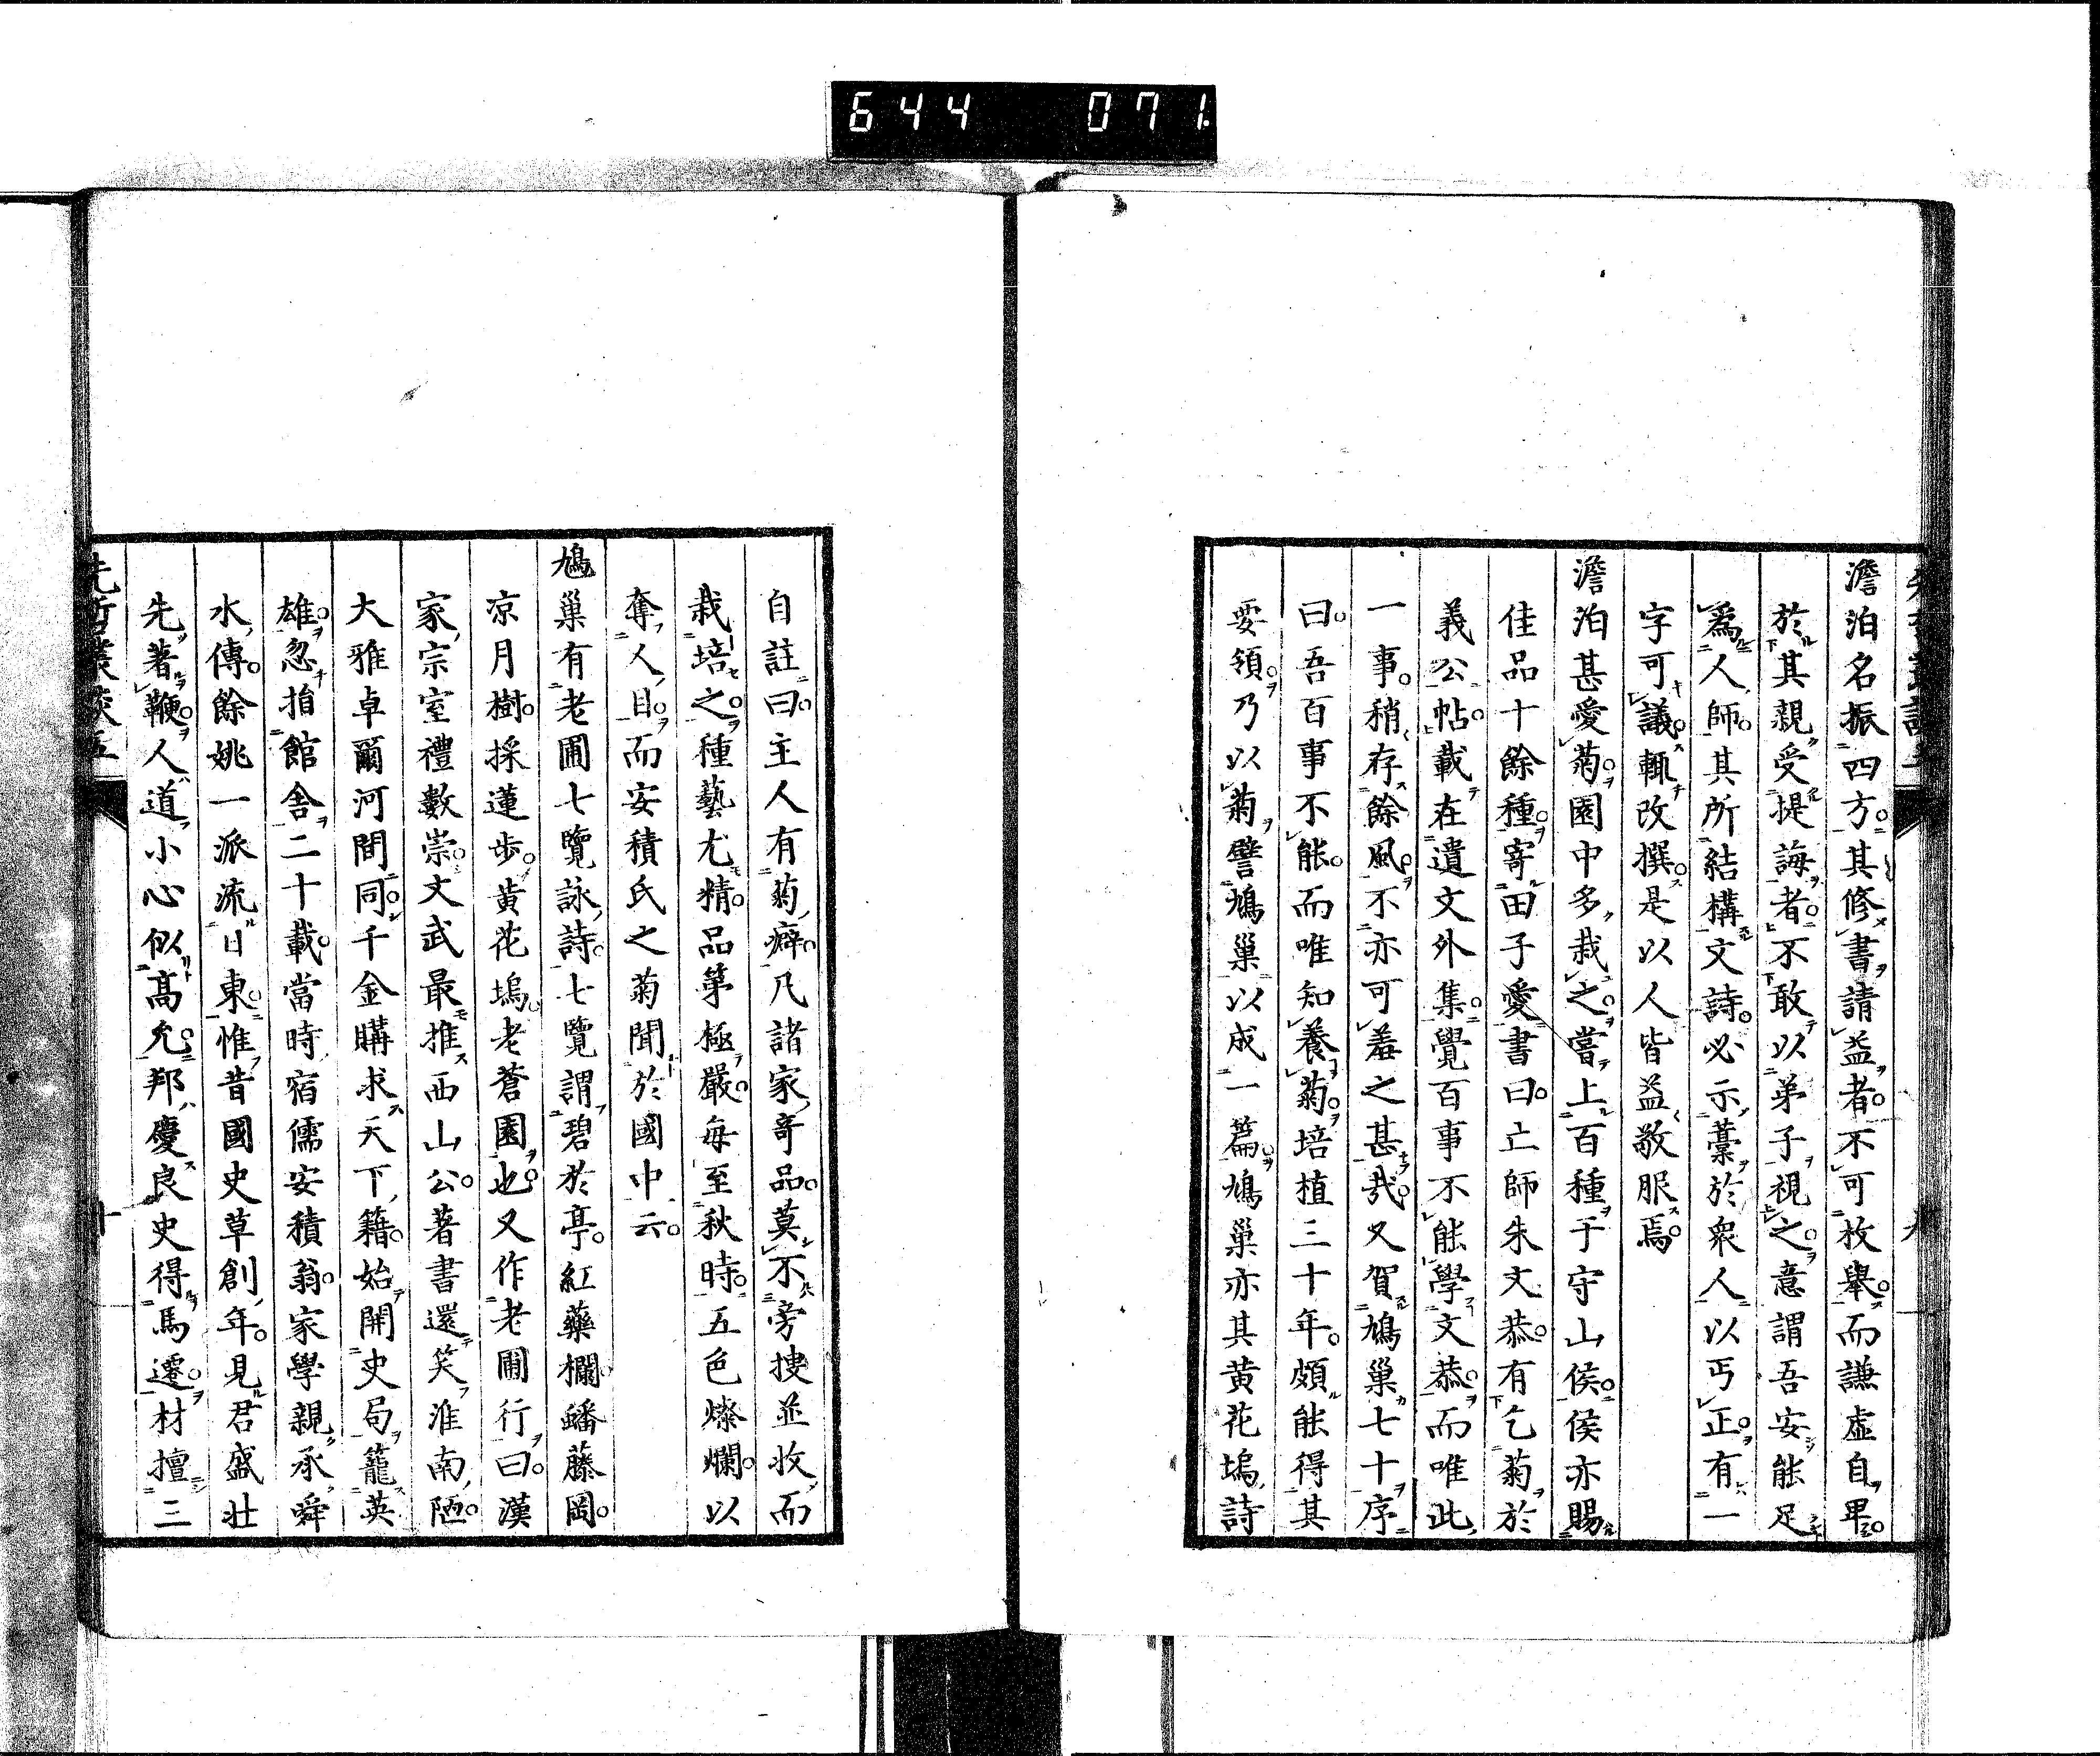 644 071
澹泊名振四方其修書請益者不可枚擧而謙虛自畢
於其親受提誨者不敢以弟子視之意謂吾安能足
爲人師其所結構文詩必示藁於衆人以丐正有一
字可議輒改撰是以人皆益敬服焉
澹泊甚愛菊園中多栽之嘗上百種于守山侯侯亦賜
佳品十餘種寄田子愛書曰亡師朱文恭有乞菊於
義公帖載在遺文外集覺百事不能學文恭而唯此
一事稍存餘風不亦可羞之甚哉又賀鳩巢七十序
曰吾百事不能而唯知養菊培植三十年頗能得其
要領乃以菊譬鳩巢以成一篇鳩巢亦其黄花塢詩
自註曰主人有菊癖凡諸家奇品莫不旁捜並收而
栽培之種藝尤精品第極嚴每至秋時五色燦爛以
奪人目而安積氏之菊聞於國中云
鳩巢有老圃七覽詠詩七覽謂碧於亭紅藥欄蟠藤岡
凉月樹採蓮步黄花塢老蒼園也又作老圃行曰漢
家宗室禮數崇文武最推西山公著書還笑淮南陋
大雅卓爾河間同千金購求天下籍始開史局籠英
雄忽揎館舎二十載當時宿儒安積翁家學親承舜
水傳餘姚一派流日東惟昔國史草創年見君盛壯
先著鞭人道小心似高允邦慶良史得馬遷材擅三
先哲叢談五 十